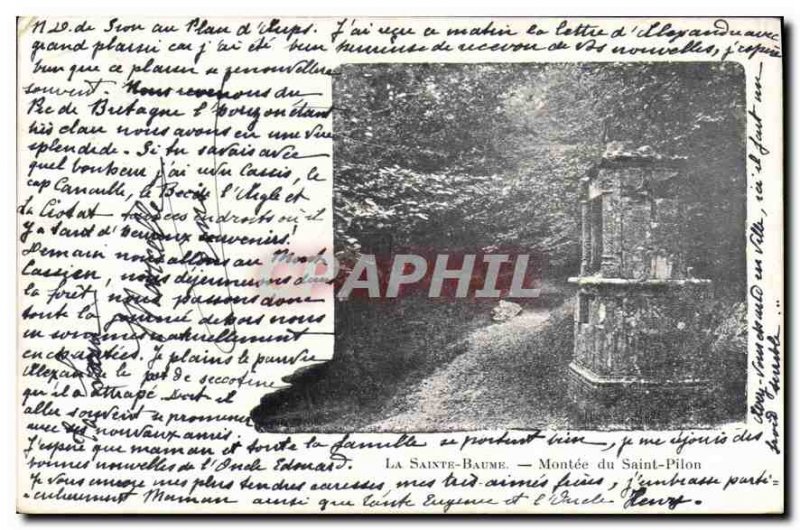 N 29. de Sion au Plan d'Aups. J'ai reçu ce matin la lettre d'Alexandre avec
grand plaisir car j'ai été bien heureuse de recevoir de vos nouvelles, j'espère
bien que ce plaisir se renouvellera
souvent. Nous revenons du
Pic de Bretagne l'horizon étant
très clair nous avons eu une vue
splendide. Si tu savais avec
quel bonheur j'ai vu Cassis, le
cap Canaille, le Bec de l'Aigle et
la Ciotat tous ces endroits où il
y a tant d'heureux souvenirs.
Demain nous allons au Mont
Cassien, nous déjeunerons dans
la forêt, nous passons donc
toute la journée dehors nous
en sommes naturellement
enchantées. Je plains le pauvre
Alexandre le de seccotine
qu'il a attrapé. Doit il
aller souvent se promener
avec ses nouveaux amis.
J'espère que maman et toute la famille se portent bien, je me réjouis des
bonnes nouvelles de l'Oncle Edouard.
Je vous envoie mes plus tendres caresses, mes très-aimés frères, j'embrasse parti-
culièrement Maman ainsi que Tante Eugénie et l'Oncle Henry.
LA SAINTE-BAUME. — Montée du Saint-Pilon
CPARPHIL